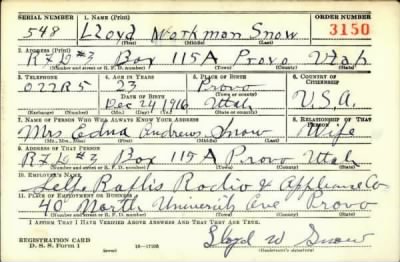 SERIAL NUMBER 1. NAME (Print) ORDER NUMBER
548 Lloyd Workman Snow 3150
(First) (Middle) (Last)
2. ADDRESS (Print)
R.F.D. #3 Box 115A Provo Utah
(Number and street or R. F. D. number) (Town) (County) (State)
3. TELEPHONE 4. AGE IN YEARS 5. PLACE OF BIRTH 6. COUNTRY OF CITIZENSHIP
022R5 23 Provo
DATE OF BIRTH (Town or county)
Dec 24 1916 Utah U.S.A.
(Exchange) (Number) (Mo.) (Day) (Yr.) (State or country)
7. NAME OF PERSON WHO WILL ALWAYS KNOW YOUR ADDRESS 8. RELATIONSHIP OF THAT PERSON
Mrs Edna Andrews Snow Wife
(Mr., Mrs., Miss) (First) (Middle) (Last)
9. ADDRESS OF THAT PERSON
R.F.D. #3 Box 115A Provo Utah
(Number and street or R. F. D. number) (Town) (County) (State)
10. EMPLOYER'S NAME
Radio & Appliance Co
11. PLACE OF EMPLOYMENT OR BUSINESS
40 North University Ave Provo
(Number and street or R. F. D. number) (Town) (County) (State)
I AFFIRM THAT I HAVE VERIFIED ABOVE ANSWERS AND THAT THEY ARE TRUE.
REGISTRATION CARD
D. S. S. Form 1 16-17105 Lloyd W Snow
(Registrant's signature)